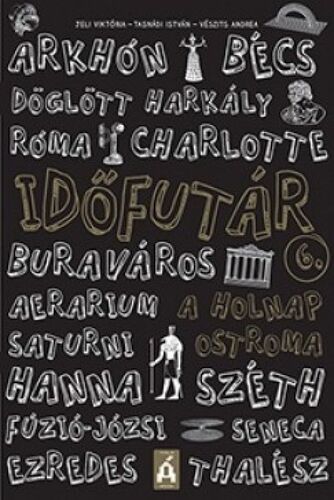 JELI VIKTÓRIA - TASNÁDI ISTVÁN - VÉSZITS ANDREA
ARKHÓN BÉCS
DÖGLÖTT HARKÁLY
RÓMA CHARLOTTE
IDŐFUTÁR
6.
BURAVÁROS
AERARIUM A HOLNAP
SATURNI OSTROMA
HANNA SZÉTH
FÚZIÓ-JÓZSI SENECA
EZREDES THALÉSZ